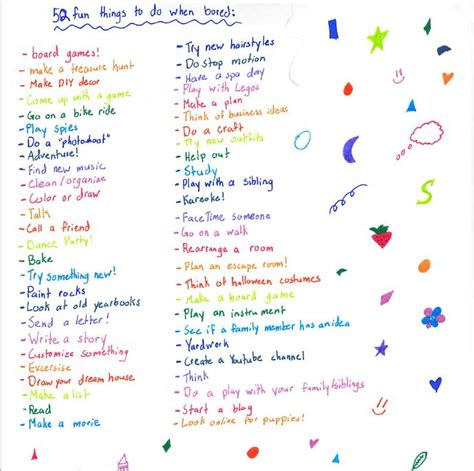 52 fun things to do when bored:
- board games!
- make a treasure hunt
- Make DIY decor
- Come up with a game
- Go on a bike ride
- Play Spies
- Do a "photoshoot"
- Adventure!
- Find new music
- Clean/organize
- Color or draw
- Talk
- Call a friend
- Dance Party!
- Bake
- Try something new!
- Paint rocks
- Look at old yearbooks
- Send a letter!
- Write a story
- Customize something
- Excersise
- Draw your dream house
- Make a list
- Read
- Make a movie
- Try new hairstyles
- Do stop motion
- Have a spa day
- Play with Legos
- Make a plan
- Think of business ideas
- Do a craft
- Try new outfits
- Help out
- Study
- Play with a sibling
- Kareoke!
- FaceTime someone
- Go on a walk
- Rearrange a room
- Plan an escape room!
- Think of halloween costumes
- Make a board game
- Play an instrument
- See if a family member has an idea
- Yardwork
- Create a Youtube channel
- Think
- Do a play with your family/siblings
- Start a blog
- Look online for puppies!